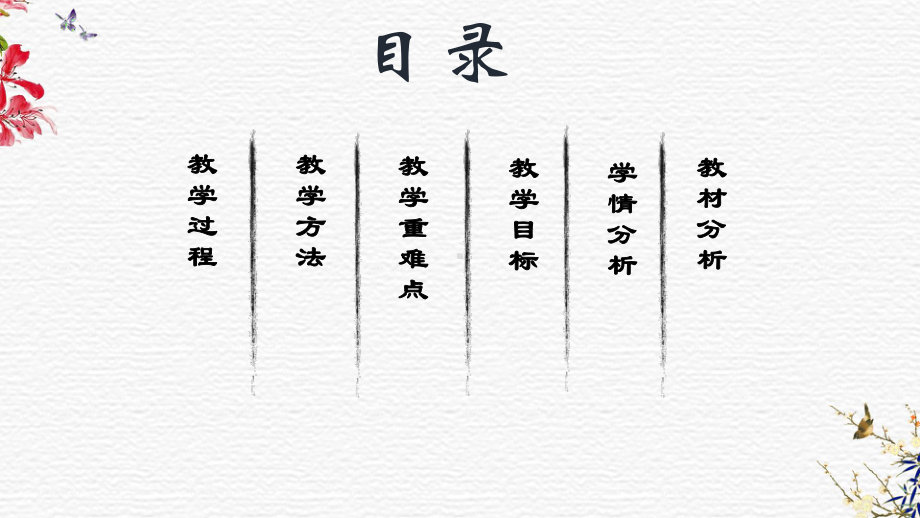 目录
教材分析
学情分析
教学目标
教学重难点
教学方法
教学过程